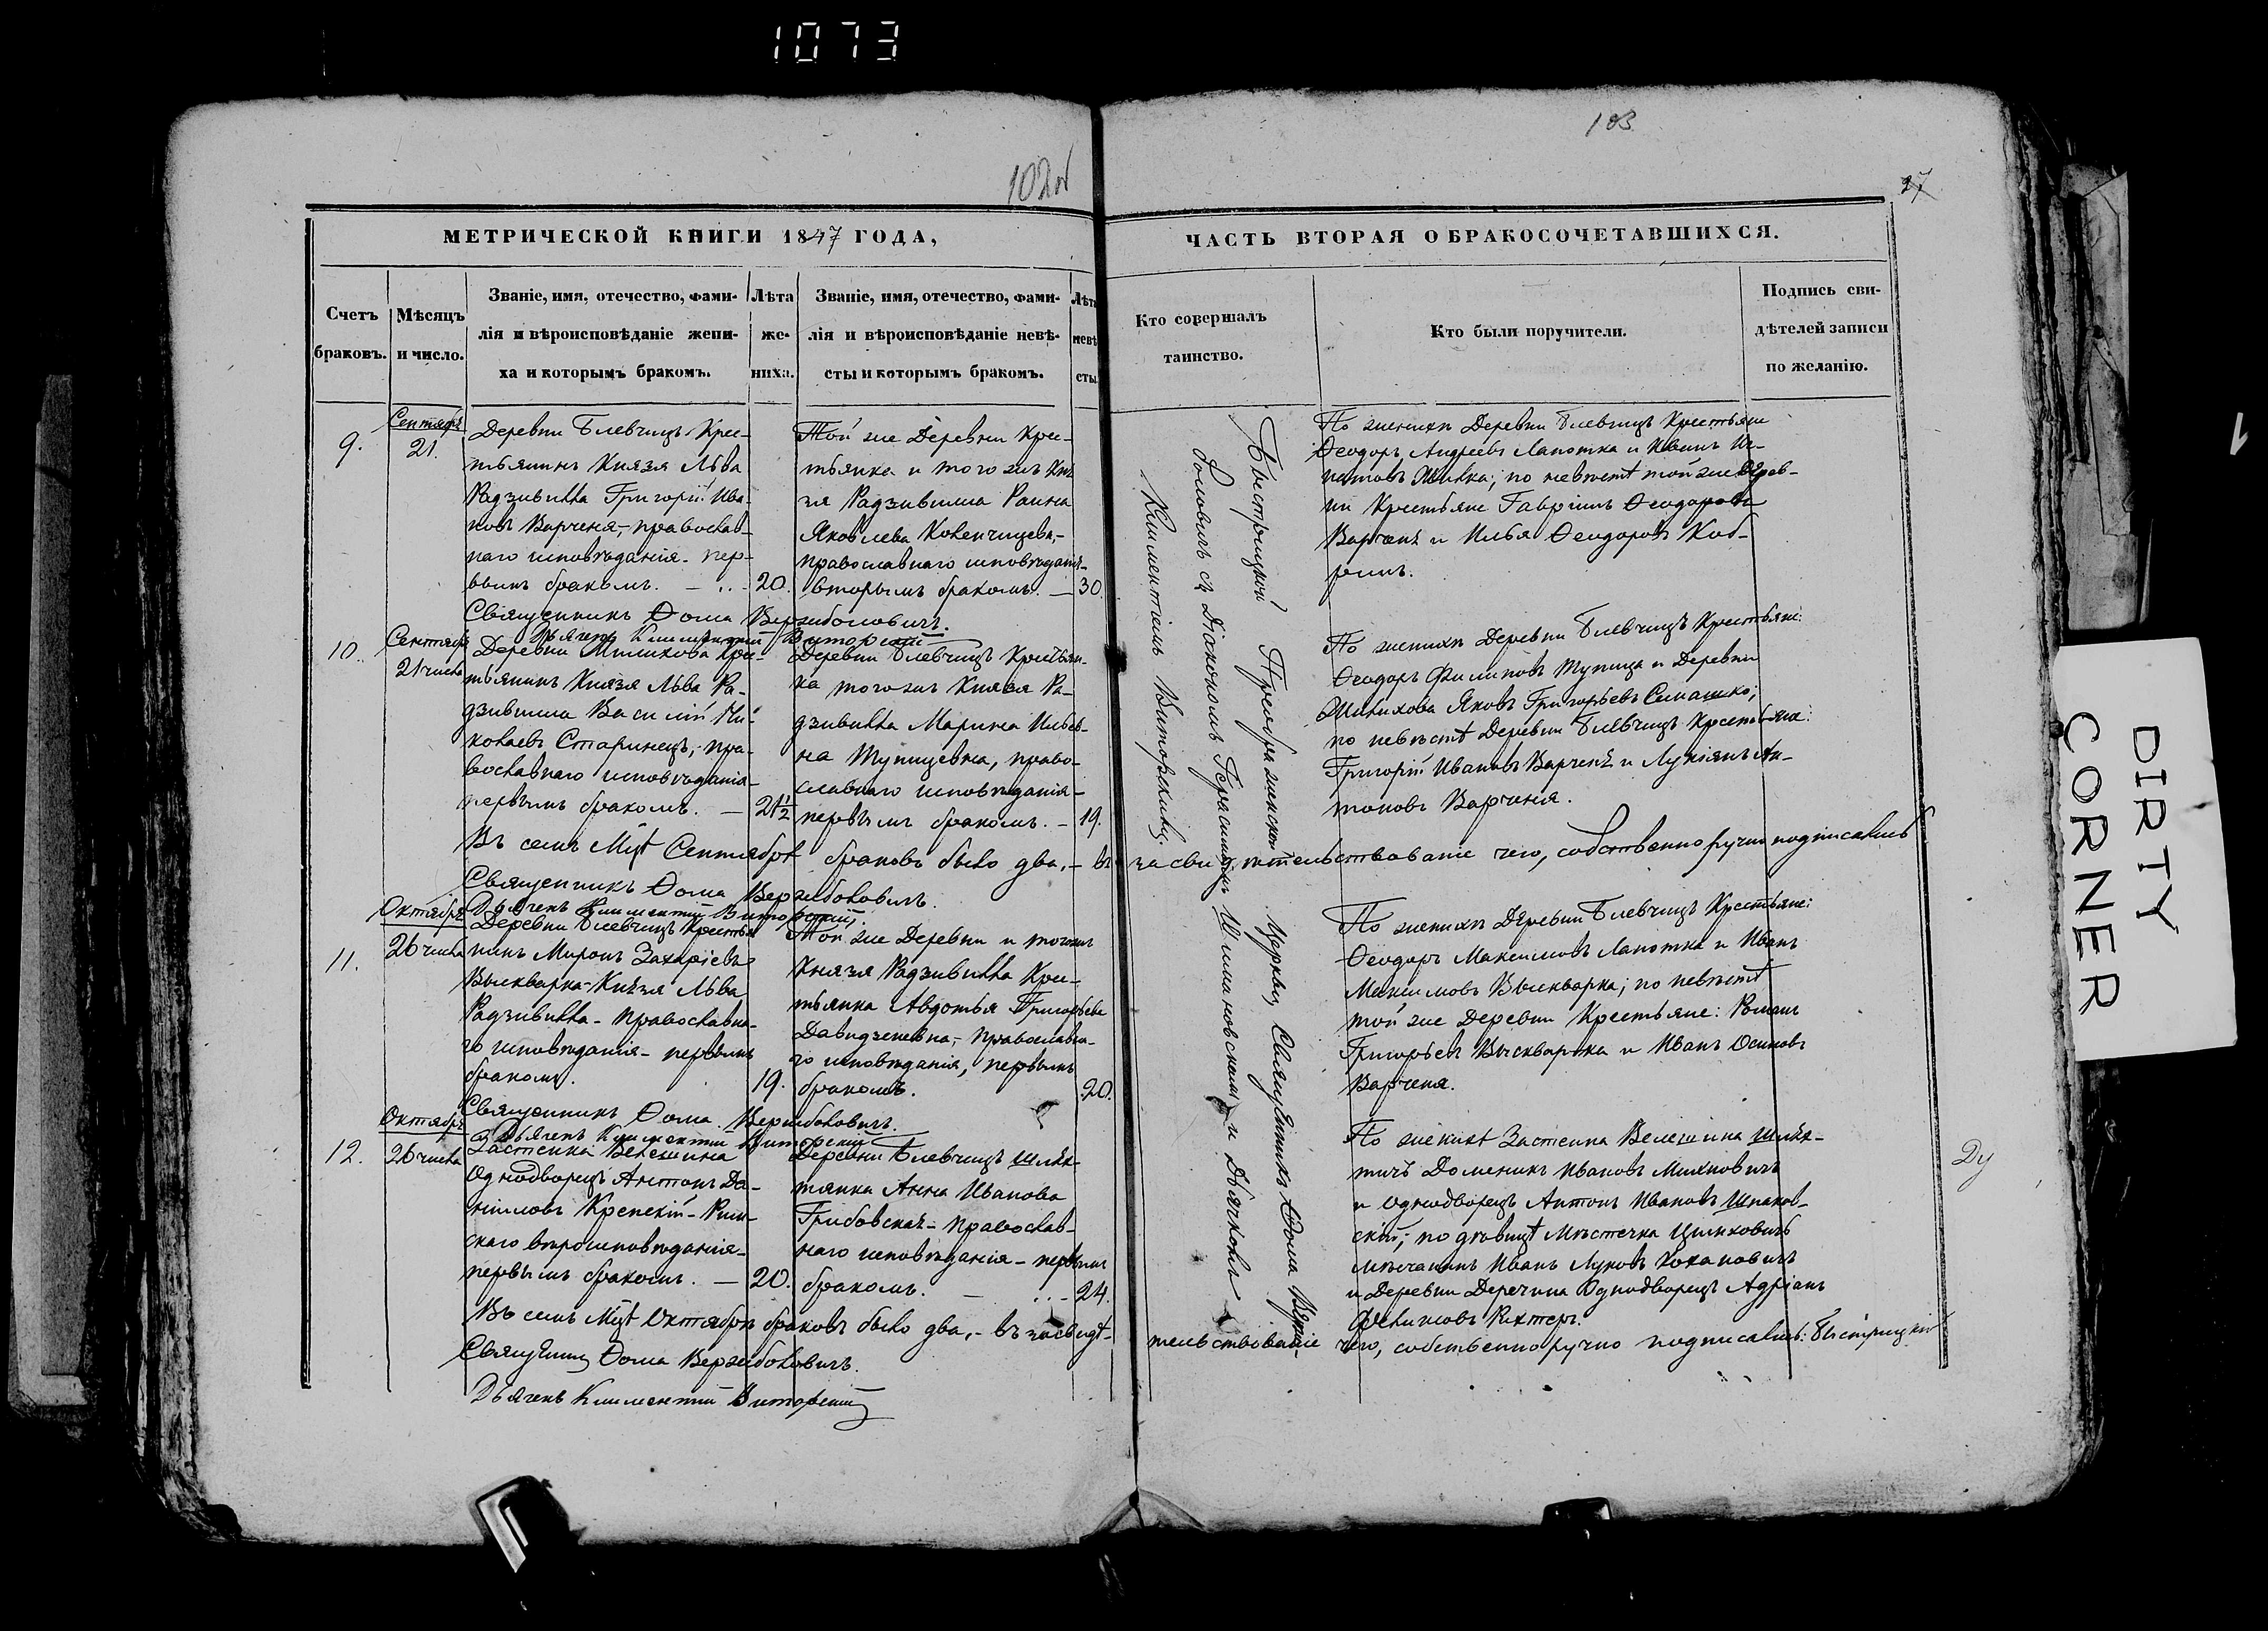 1073
102об
103
37
МЕТРИЧЕСКОЙ КНИГИ 1847 ГОДА,
ЧАСТЬ ВТОРАЯ О БРАКОСОЧЕТАВШИХСЯ.
Счетъ браковъ.
Мѣсяцъ и число.
Званіе, имя, отечество, фами-
лія и вѣроисповѣданіе жени-
ха и которымъ бракомъ.
Лѣта
же-
ниха.
Званіе, имя, отечество, фами-
лія и вѣроисповѣданіе невѣ-
сты и которымъ бракомъ.
Лѣта
невѣ
сты.
Кто совершалъ
таинство.
Кто были поручители.
Подпись сви-
дѣтелей записи
по желанію.
9.
Сентября
21.
Деревни Блевчицъ Крес-
тьянинъ Князя Льва
Радзивилла Григорій Ива-
новъ Варченя, православ-
наго исповѣданія. пер-
вымъ бракомъ.
20.
Той же Деревни Крес-
тьянка и того жъ Кня
зя Радзивилла
Яковлева
православнаго исповѣданія
вторымъ бракомъ.
30.
По женихѣ Деревни Блевчицъ Крестьяне
Ѳеодоръ Андреевъ Лапотка и Иванъ Иг-
натовъ по невѣстѣ той же Дерев-
ни Крестьяне Гавріилъ Ѳеодоровъ
Варченя и Илья Ѳеодоровъ Коб-
ринъ.
Священникъ Ѳома Вержболовичъ.
Дьячекъ Климентій Виторскій
10.
Сентября
21 числа
Деревни Милихова Крес-
тьянинъ Князя Льва Ра-
дзивилла Василій Ни-
колаевъ Старинецъ, пра-
вославнаго исповѣданія
первымъ бракомъ.
21½
Деревни Блевчицъ Крестьян-
ка того жъ Князя Ра-
дзивилла Марина Ильев-
на Тупицевна, право-
славнаго исповѣданія
первымъ бракомъ.
19.
По женихѣ Деревни Блевчицъ Крестьяне:
Ѳеодоръ Филиповъ Тупица и Деревни
Милихова Яковъ Григорьевъ Семашко;
по невѣстѣ Деревни Блевчицъ Крестьяне:
Григорій Ивановъ Варченя и Лукіянъ Ан-
тоновъ Варченя.
Въ семъ Мцѣ Сентябрѣ браковъ было два, въ засвидѣтельствованіе чего, собственноручно подписались
Священникъ Ѳома Вержболовичъ.
Дьячекъ Климентій Виторскій.
11.
Октября
26 числа
Деревни Блевчицъ Крестья
нинъ Миронъ Захаріевъ
Выскварка Князя Льва
Радзивилла Православна-
го исповѣданія первымъ
бракомъ.
19.
Той же Деревни и тогожъ
Князя Радзивилла Крес-
тьянка Авдотья Григорьева
Давидченевна, Православна-
го исповѣданія, первымъ
бракомъ.
20.
По женихѣ Деревни Блевчицъ Крестьяне:
Ѳеодоръ Максимовъ Лапотка и Иванъ
Максимовъ Выскварка; по невѣстѣ
той же Деревни Крестьяне: Романъ
Григорьевъ Выскварка и Иванъ Осиповъ
Варченя.
Священникъ Ѳома Вержболовичъ.
Дьячекъ Климентій Виторскій
12.
Октября
26 числа
Застенка Велешина
Однодворецъ Антонъ Да-
ніиловъ Крепскій Рим-
скаго вѣроисповѣданія
первымъ бракомъ.
20.
Деревни Блевчицъ Шлях-
тянка Анна Иванова
Грибовская Православ-
наго исповѣданія первымъ
бракомъ.
24.
По женихѣ Застенка Велешина Шлях-
тичъ Доменикъ Ивановъ Михновичъ
и Однодворецъ Антонъ Ивановъ Шпаков-
скій; по дѣвицѣ Мѣстечка Цимковичъ
мѣщанинъ Иванъ Луковъ
и Деревни Деречина Однодворецъ Адріанъ
Рихтеръ.
Въ семъ Мцѣ Октябрѣ браковъ было два, въ засвидѣ-
тельствованіе чего, собственноручно подписались: Быстрицкій
Священникъ Ѳома Вержболовичъ.
Дьячекъ Климентій Виторскій
Быстрицкой Преображенской Церкви Священникъ Ѳома Верж-
боловичъ съ Діакономъ Герасимомъ Шимановскимъ и Дьячкомъ
Климентіемъ Виторскимъ.
DIRTY
CORNER
1